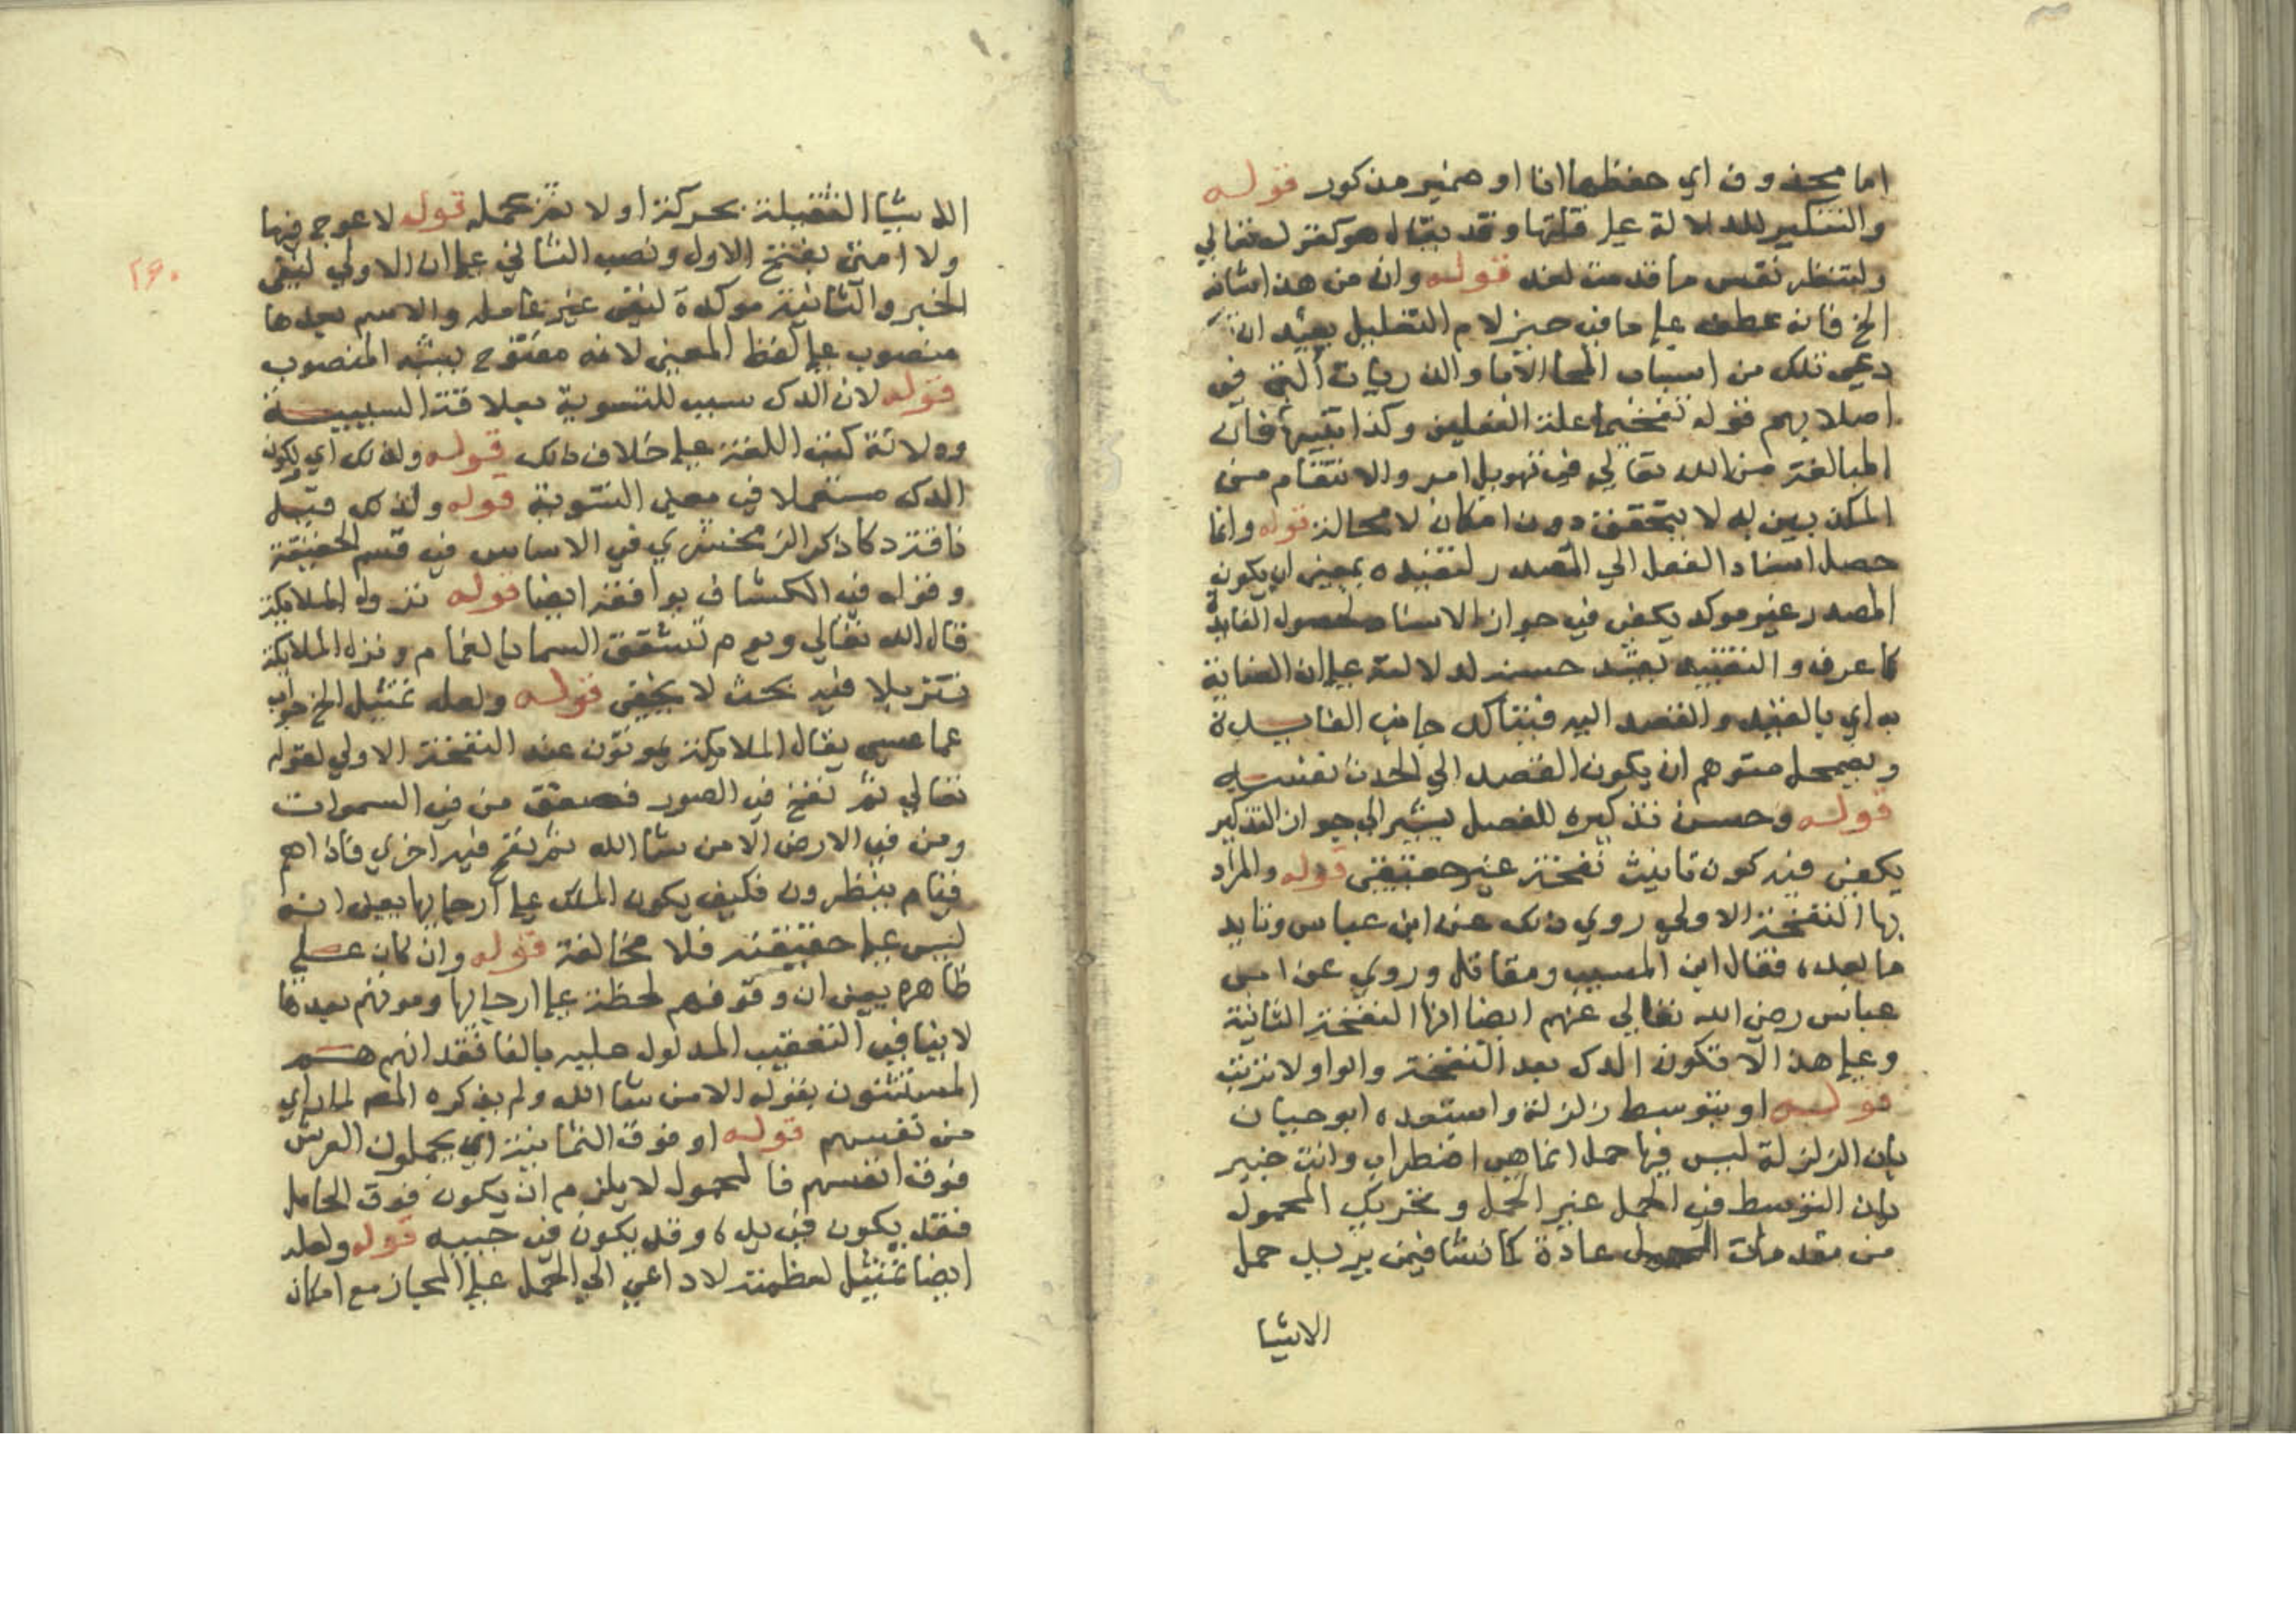 اما محذوف اي حفظهما انا او ضمير مذكور قوله
والتنكير للدلالة على قلتها وقد يقال هو كقوله تعالى
ولتنظر نفس ما قدمت لغد قوله وان من هذا شانه
الخ فانه عطف على ما في حيز لام التعليل يفيد ان
دعي تلك من اسباب انجا الابا والذريات التي في
اصلابهم قوله تفخيما علة الفعلين وكذا تنبيها فان
المبالغة من الله تعالى في تهويل امر والانتقام من
المكذبين به لا يتحقق دون امكانه لا محالة قوله وانما
حصل اسناد الفعل الى المصدر لتقييده بمعنى ان يكون
المصدر غير موكد يكفي في جواز الاسناد لحصول الفايدة
كما عرف والتقييد يفيد حسنه لدلالته على ان العناية
به اي بالقيد والقصد اليه فيتاكد جانب الفايدة
ويضمحل متوهم ان يكون القصد الى الحدث نفسه
قوله وحسن تذكيره للفصل يشير الى جواز التذكير
يكفي فيه كون تانيث نفخة غير حقيقي قوله والمراد
بها النفخة الاولى روي ذلك عن ابن عباس وتابعه
ما بعده فقال ابن المسيب ومقاتل وروي عن ابن
عباس رضي الله تعالى عنهم ايضا انها النفخة الثانية
وعلى هذا لا فتكون الدك بعد النفخة والواو لا ترتب
قوله او بتوسط زلزلة واستبعده ابو حيان
بان الزلزلة ليس فيها حمل انما هي اضطراب وانت خبير
بان التوسط في الحمل غير الحمل وتحريك المحمول
من مقدمات الحمل عادة كما نشا فيمن يريد حمل
الاشيا
٢٦٠
الاشيا الثقيلة بحركة اولا ثم تحمله قوله لا عوج فيها
ولا امتى بفتح الاول ونصب الثاني على ان الاولى لنفي
الخبر والثانية موكدة لنفي غير عامله والاسم بعدها
منصوب على لفظ المعنى لانه مفتوح يشبه المنصوب
قوله لان الدك سبب للتسوية بعلاقة السببية
ودلالة كتب اللغة على خلاف ذلك قوله ولذلك اي لكون
الدك مستعملا في معنى التسوية قوله ولذلك قيل
ناقة دكا ذكر الزمخشري في الاساس في قسم الحقيقة
وقوله في الكشاف يوافقه ايضا قوله نزول الملايكة
قال الله تعالى ويوم تشقق السما بالغمام ونزل الملايكة
تنزيلا فيه بحث لا يخفى قوله ولعله تمثيل الخ جواب
عما عسى يقال الملايكة يموتون عند النفخة الاولى لقوله
تعالى ثم نفخ في الصور فصعق من في السموات
ومن في الارض الا من شا الله ثم نفخ فيه اخرى فاذا هم
قيام ينظرون فكيف يكون الملك على ارجايها بعيد انه
ليس على حقيقته فلا مخالفة قوله وان كان على
ظاهره يعني ان وقوفهم لحظة على ارجايها وموتهم بعدها
لا ينافي التعقيب المدلول عليه بالفا فقد انهم هم
المستثنون بقوله الا من شا الله ولم يذكره المص لما راي
من نفسهم قوله او فوق الثمانية اي يحملون العرش
فوق انفسهم فالمحمول لا يلزم ان يكون فوق الحامل
فقد يكون في يده وقد يكون في جيبه قوله ولعله
ايضا تمثيل لعظمته لا داعي الى الحمل على المجاز مع امكان